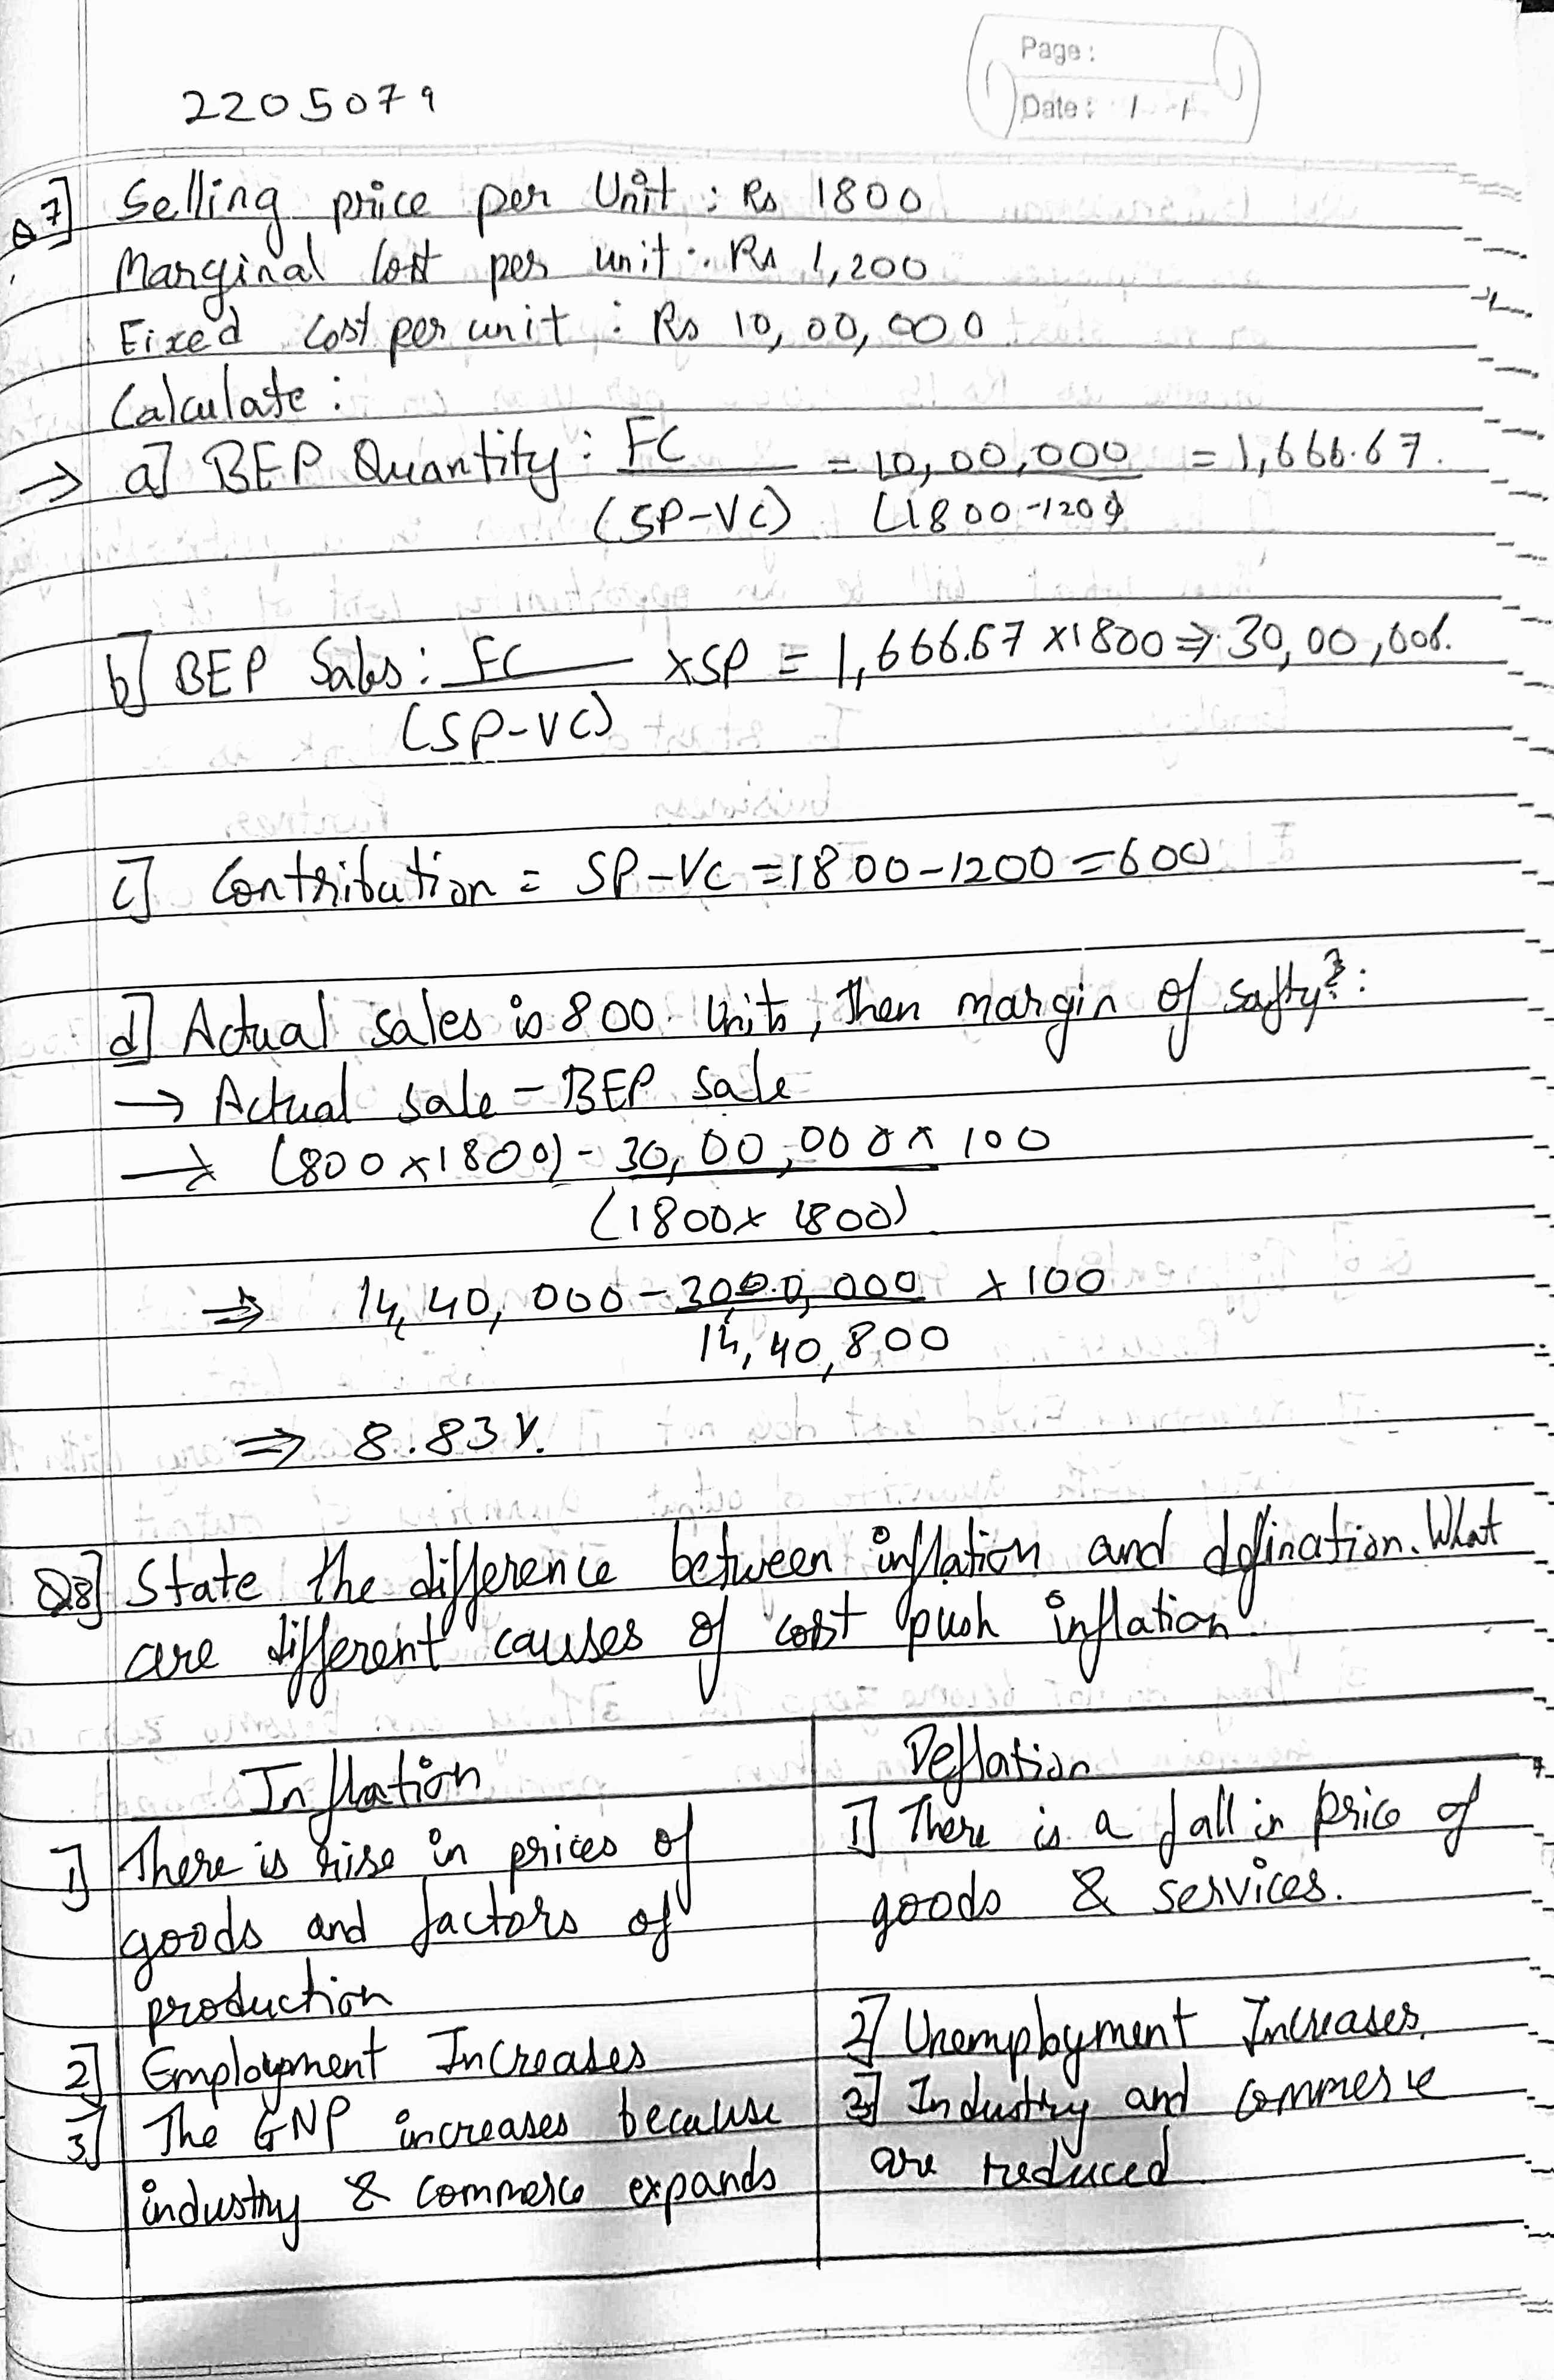 Page :
Date : / /
2205079
Q7] Selling price per Unit : Rs 1800
Marginal Cost per unit : Rs 1,200
Fixed Cost per unit : Rs 10,00,000
Calculate :
→ a] BEP Quantity : FC = 10,00,000 = 1,666.67.
(SP-VC) (1800-1200)
b] BEP Sales : FC x SP = 1,666.67 x 1800 ⇒ 30,00,006.
(SP-VC)
c] Contribution = SP-VC = 1800-1200 = 600
d] Actual sales is 800 Units, then margin of safty? :
→ Actual sale - BEP sale
→ (800 x 1800) - 30,00,000 x 100
(1800 x 1800)
⇒ 14,40,000 - 3000,000 x 100
14,40,800
⇒ 8.83 %.
Q8] State the difference between inflation and defination. What
are different causes of cost push inflation
Inflation
Deflation
1] There is rise in prices of
goods and factors of
production
1] There is a fall in price of
goods & services.
2] Employment Increases
2] Unemployment Increases.
3] The GNP increases because
industry & commerce expands
3] Industry and commerce
are reduced